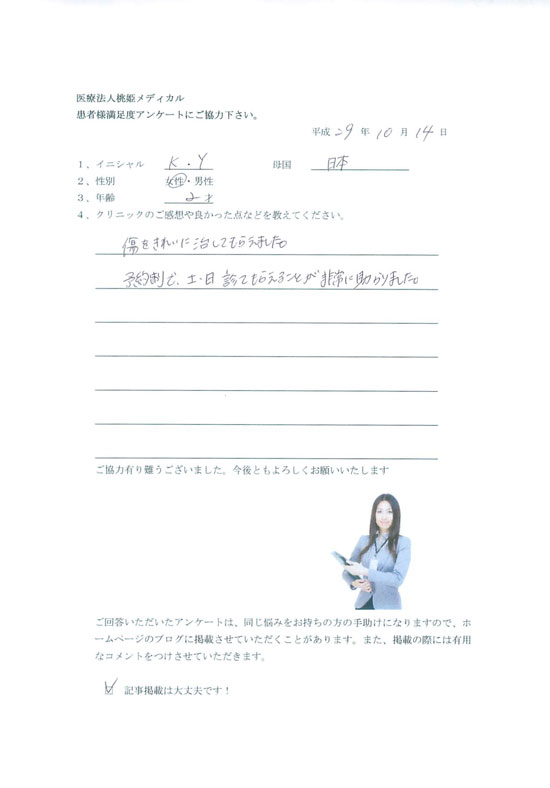 医療法人桃姫メディカル
患者様満足度アンケートにご協力下さい。
平成 29 年 10 月 14 日
1、イニシャル K・Y 母国 日本
2、性別 女性・男性
3、年齢 2才
4、クリニックのご感想や良かった点などを教えてください。
傷をきれいに治してもらえました。
予約制で、土・日診てもらえることが非常に助かりました。
ご協力有り難うございました。今後ともよろしくお願いいたします
ご回答いただいたアンケートは、同じ悩みをお持ちの方の手助けになりますので、ホ
ームページのブログに掲載させていただくことがあります。また、掲載の際には有用
なコメントをつけさせていただきます。
記事掲載は大丈夫です！